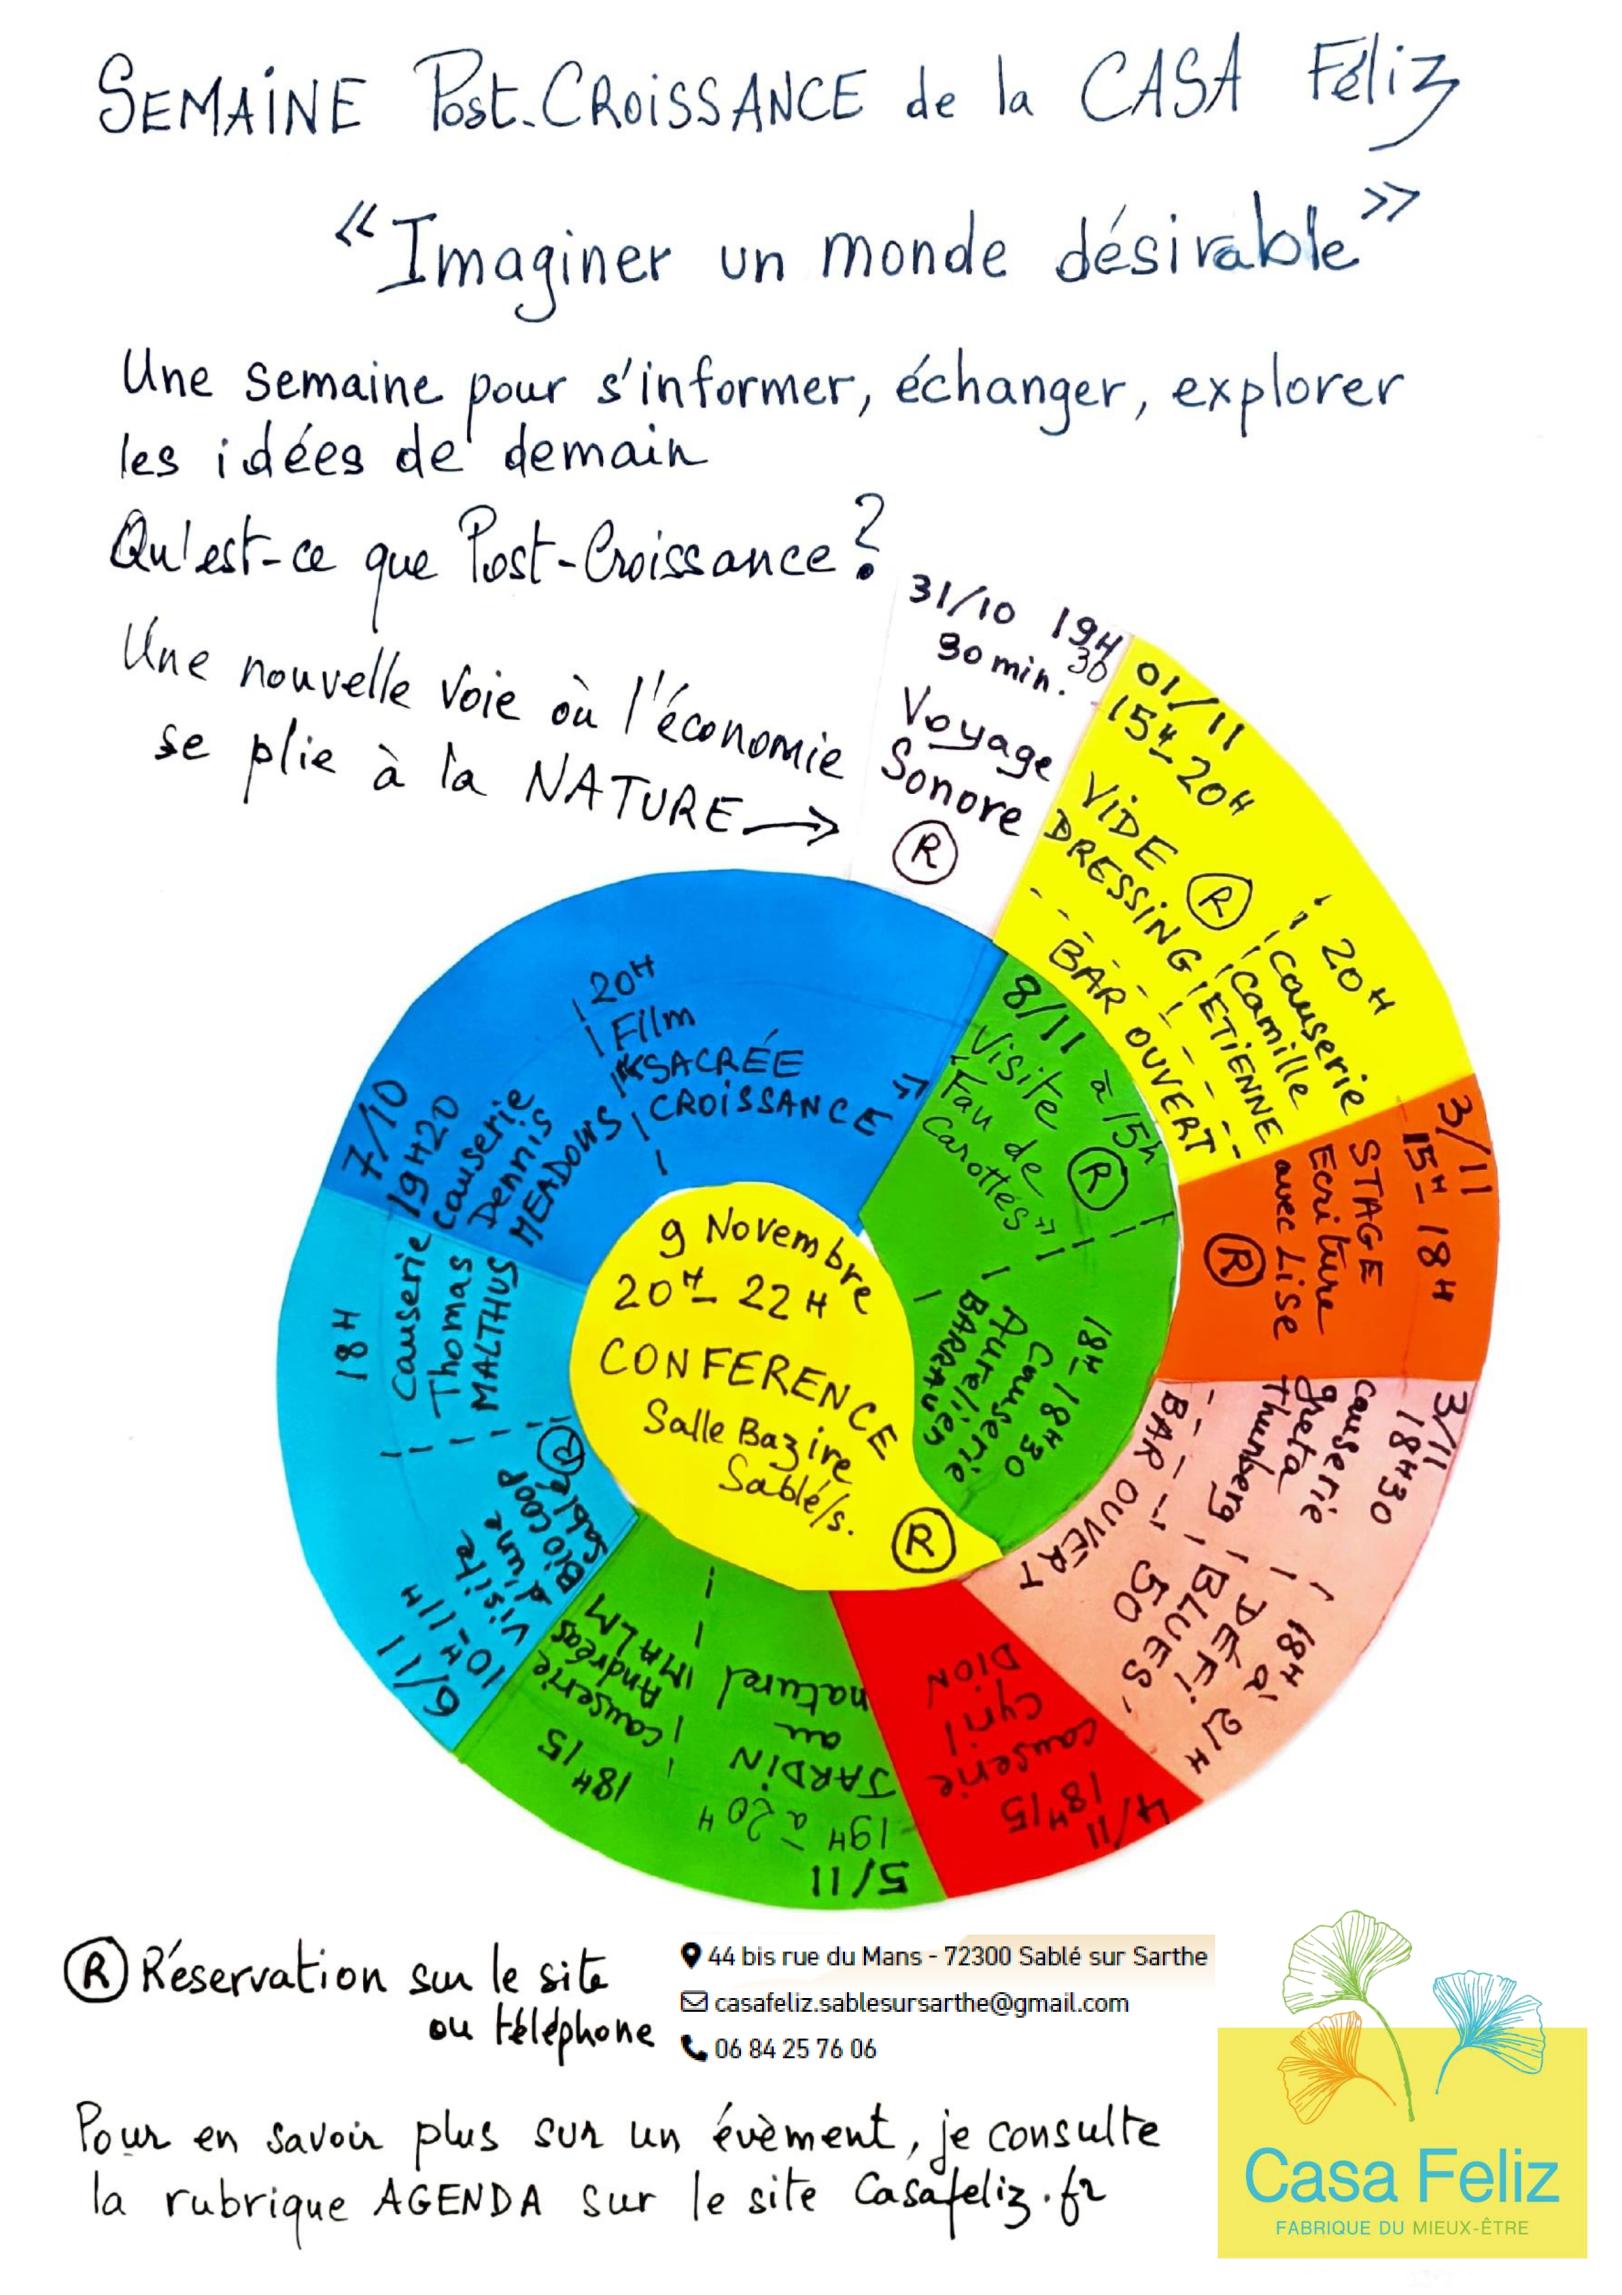 SEMAINE Post-CROISSANCE de la CASA Féliz
« Imaginer un monde désirable »
Une semaine pour s'informer, échanger, explorer
les idées de demain
Qu'est-ce que Post-Croissance ?
Une nouvelle voie où l'économie
se plie à la NATURE →
31/10 19H
30
30 min.
Voyage
Sonore
R
01/11
15H-20H
VIDE R
DRESSING
BAR OUVERT
20H
causerie
Camille
ETIENNE
3/11
15H-18H
STAGE
Ecriture
avec Lise
R
3/11
18H30
causerie
greta
thunberg
BAR OUVERT
18H à 21H
DÉFI
BLUES
50'
4/11
18H15
causerie
Cyril
DION
5/11
19H à 20H
JARDIN
au
naturel
18H15
causerie
Andréas
MALM
6/11
10H-11H
visite
d'une
BIOCOOP
Sablé
R
18H
causerie
Thomas
MALTHUS
7/10
19H20
causerie
Dennis
MEADOWS
20H
Film
« SACRÉE
CROISSANCE »
8/11 à 15h
Visite
« Fau de
Carottes »
R
18H-18H30
Causerie
Aurélien
BARRAU
9 Novembre
20H-22H
CONFERENCE
Salle Bazire
Sablé/s.
R
R Réservation sur le site
ou téléphone
44 bis rue du Mans - 72300 Sablé sur Sarthe
casafeliz.sablesursarthe@gmail.com
06 84 25 76 06
Pour en savoir plus sur un évèment, je consulte
la rubrique AGENDA sur le site Casafeliz.fr
Casa Feliz
FABRIQUE DU MIEUX-ÊTRE